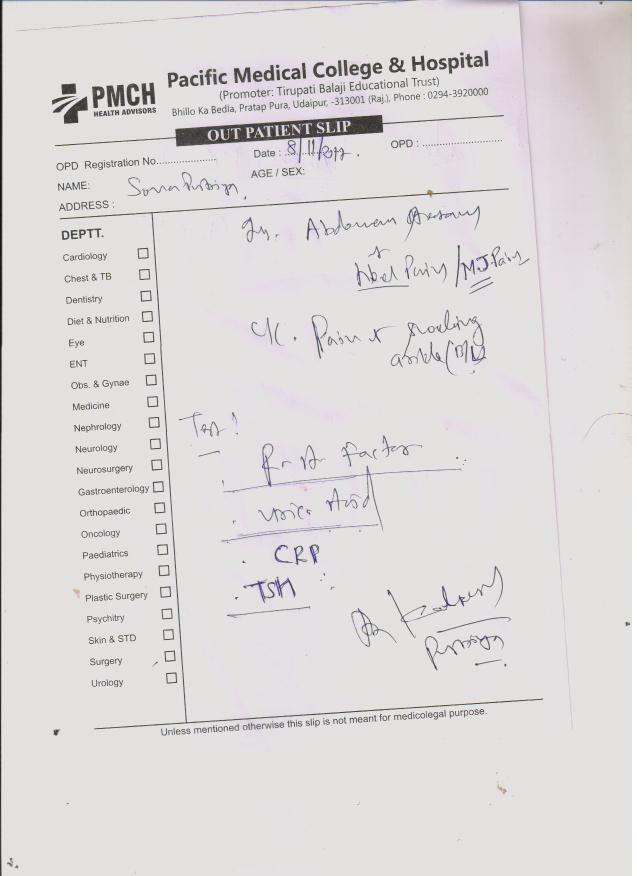 PMCH
HEALTH ADVISORS
Pacific Medical College & Hospital
(Promoter: Tirupati Balaji Educational Trust)
Bhillo Ka Bedla, Pratap Pura, Udaipur, -313001 (Raj.), Phone : 0294-3920000
OUT PATIENT SLIP
OPD Registration No.................... Date : 8/11/ OPD : ........................
NAME: AGE / SEX:
ADDRESS :
DEPTT.
Cardiology
Chest & TB
Dentistry
Diet & Nutrition
Eye
ENT
Obs. & Gynae
Medicine
Nephrology
Neurology
Neurosurgery
Gastroenterology
Orthopaedic
Oncology
Paediatrics
Physiotherapy
Plastic Surgery
Psychitry
Skin & STD
Surgery
Urology
Pain /
C/C. Pain
Test!
R A Factor
Uric Acid
CRP
TSH
Unless mentioned otherwise this slip is not meant for medicolegal purpose.